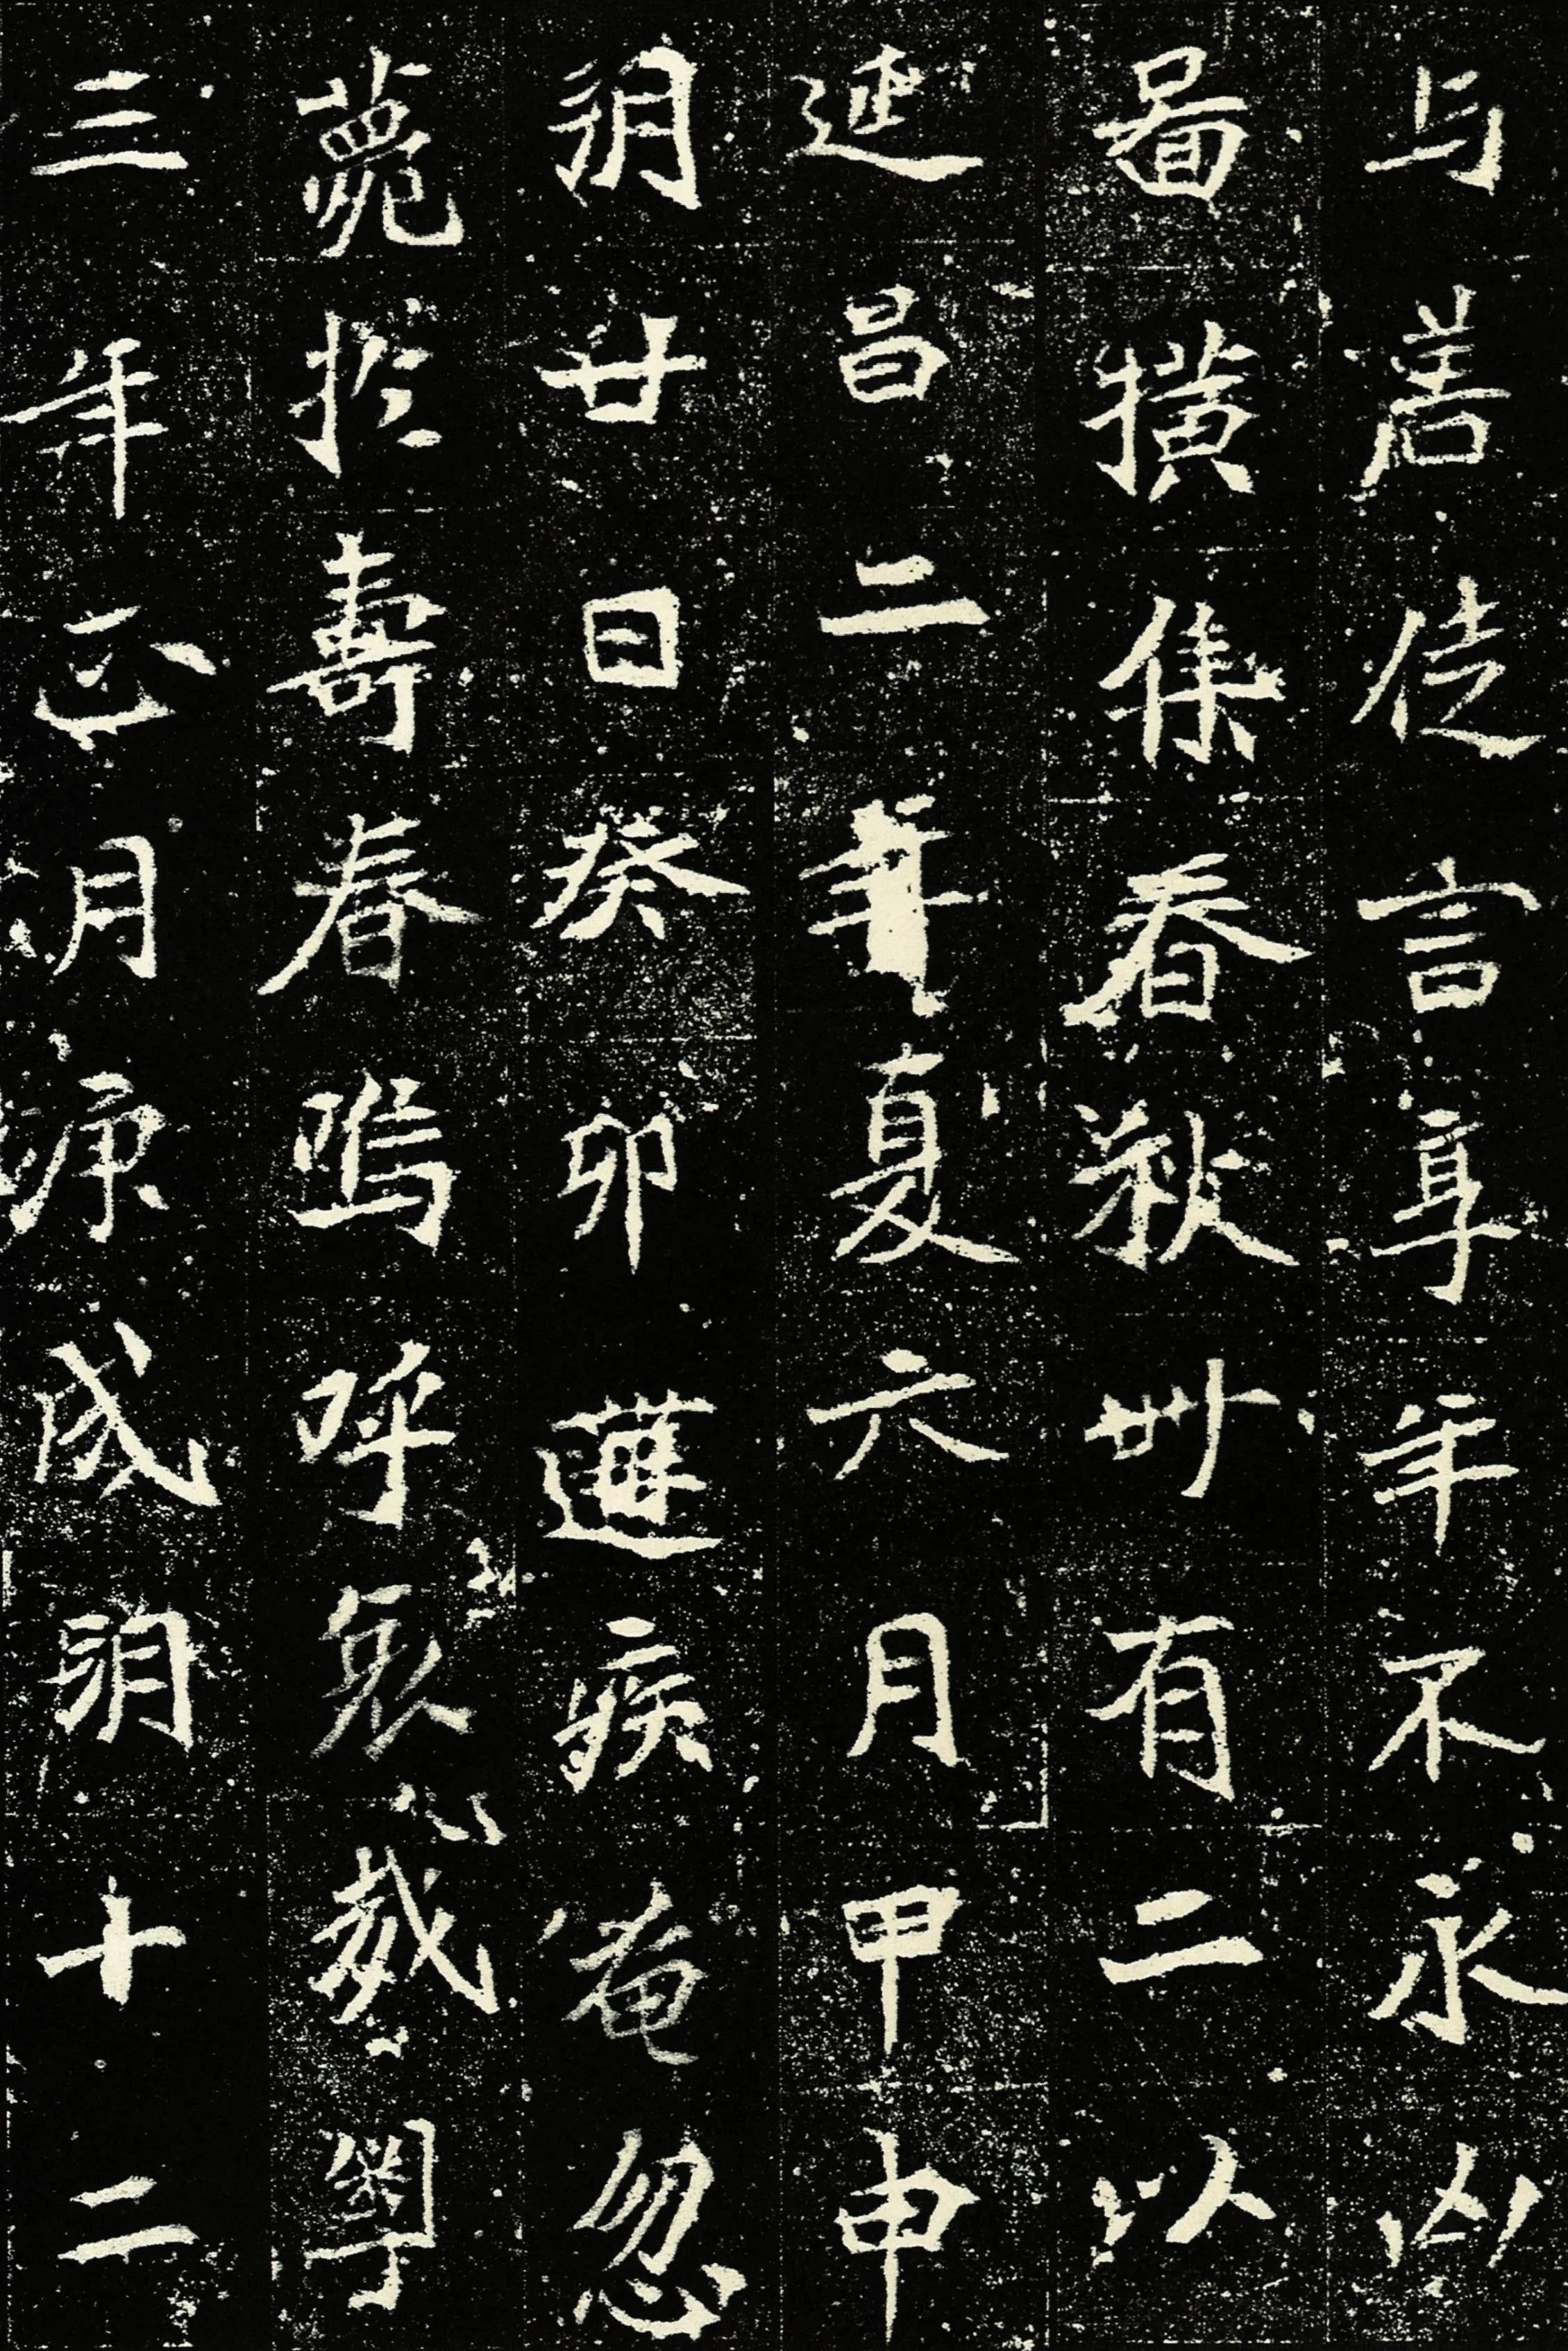 与善徒言享年不永凶
圖橫集春秋卌有二以
延昌二年夏六月甲申
朔廿日癸卯遘疾奄忽
薨於壽春嗚呼哀哉粵
三年正月庚戌朔十二